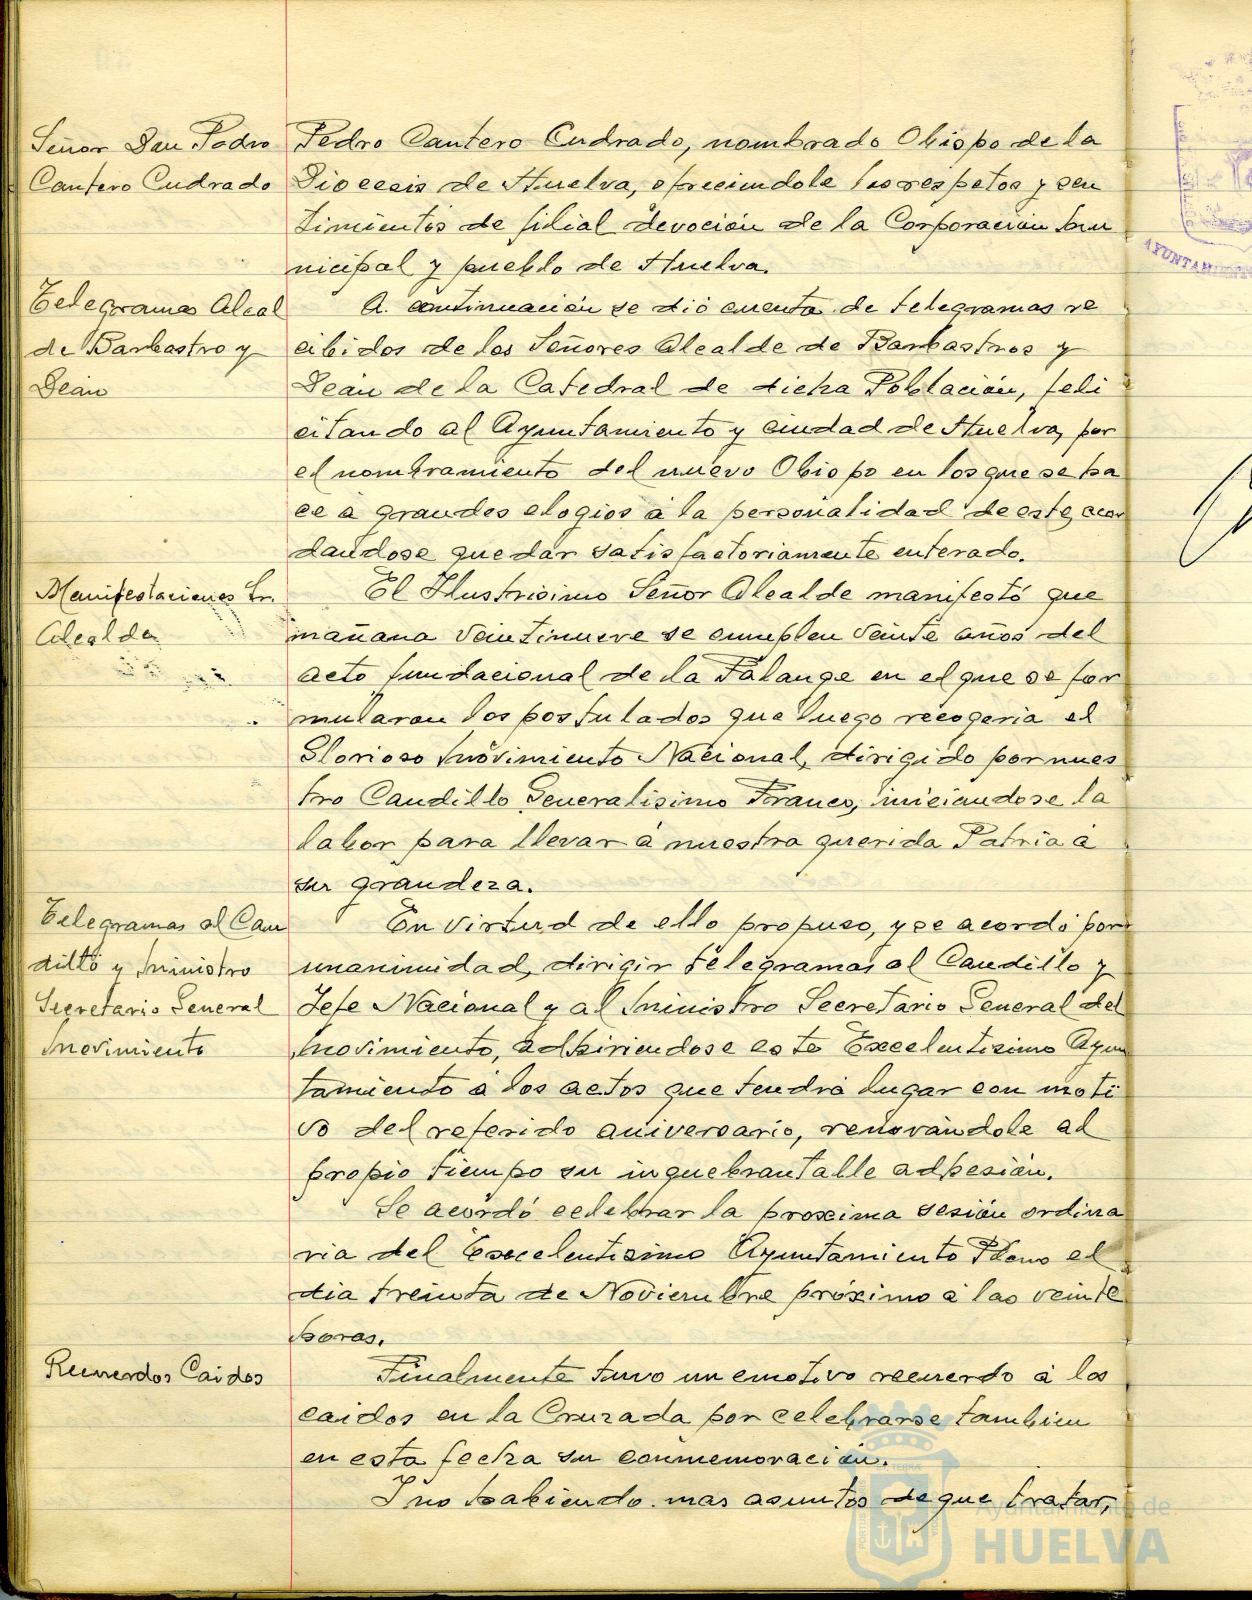 Señor Don Pedro
Cantero Cudrado
Pedro Cantero Cudrado, nombrado Obispo de la
Diocesis de Huelva, ofreciendole los respetos y sen
timientos de filial devoción de la Corporación Mu
nicipal y pueblo de Huelva.
Telegramas Alcal
de Barbastro y
Deán
A continuación se dió cuenta de telegramas re
cibidos de los Señores Alcalde de Barbastros y
Deán de la Catedral de dicha Población, feli
citando al Ayuntamiento y ciudad de Huelva, por
el nombramiento del nuevo Obispo en los que se ha
ce á grandes elogios á la personalidad de este, acor
dandose quedar satisfactoriamente enterado.
Manifestaciones Sr.
Alcalde
El Ilustrisimo Señor Alcalde manifestó que
mañana veintinueve se cumplen veinte años del
acto fundacional de la Falange en el que se for
mularon los postulados que luego recogeria el
Glorioso Movimiento Nacional, dirigido por nues
tro Caudillo Generalisimo Franco, iniciandose la
labor para llevar á nuestra querida Patria á
su grandeza.
Telegramas al Cau
dillo y Ministro
Secretario General
Movimiento
En virtud de ello propuso, y se acordó por
unanimidad, dirigir telegramas al Caudillo y
Jefe Nacional y al Ministro Secretario General del
Movimiento, adhiriendose este Excelentisimo Ayun
tamiento á los actos que tendrá lugar con moti
vo del referido aniversario, renovándole al
propio tiempo su inquebrantable adhesión.
Se acordó celebrar la proxima sesión ordina
ria del Excelentisimo Ayuntamiento Pleno el
dia treinta de Noviembre próximo á las veinte
horas.
Recuerdos Caidos
Finalmente tuvo un emotivo recuerdo á los
caidos en la Cruzada por celebrarse tambien
en esta fecha su conmemoración.
Y no habiendo mas asuntos de que tratar,
Ayuntamiento de
HUELVA